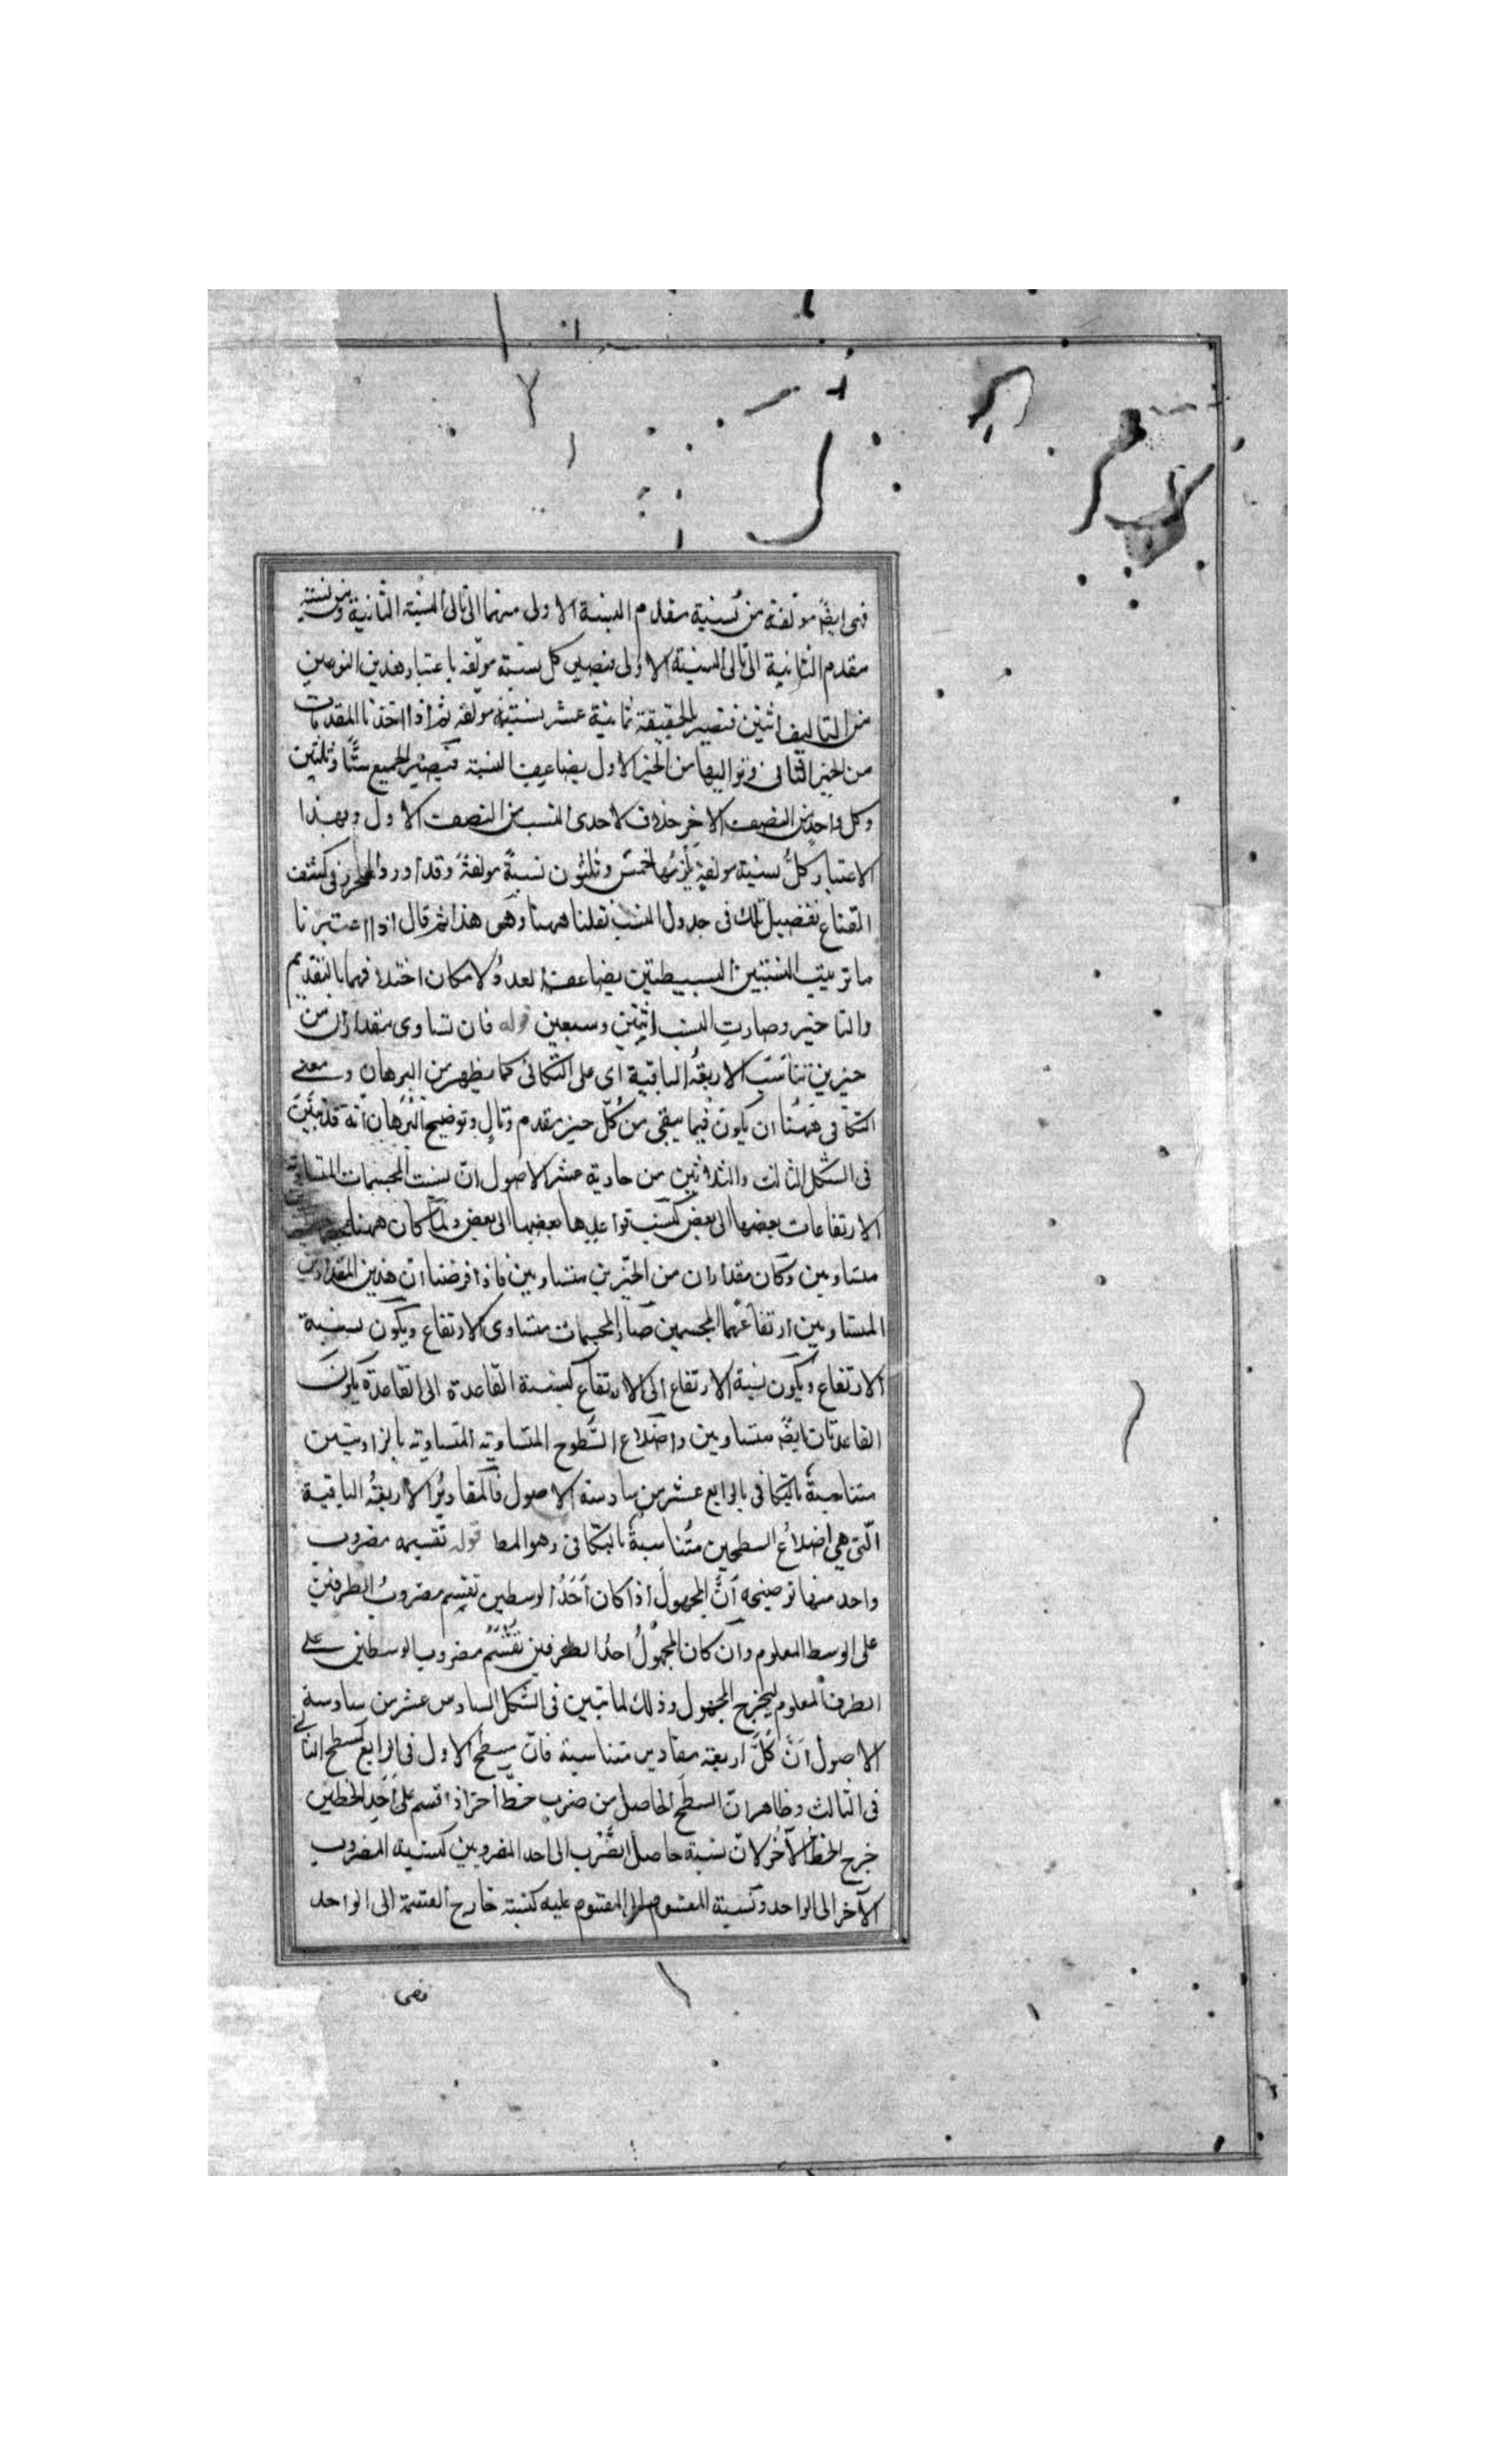 فهى ايضً مولفة من نسبة مقدم النسبة الاولى منهما الى تالى النسبة الثانية ومن نسبة
مقدم الثانية الى تالى النسبة الاولى فيصير كل نسبة مولفة باعتبار هذين النوعين
من التاليف اثنين فتصير بالحقيقة ثمانية عشر نسبة مولفة ثم اذا اخذنا المقدمات
من الحيز الثانى وتواليها من الحيز الاول يضاعف النسبة فيصير الجميع ستًّا وثلثين
وكل واحد من النصف الاخر خلاف لاحدى النسب من النصف الاول وبهذا
الاعتبار كلُّ نسبة مولفةٍ يلزمُها خمسٌ وثلثون نسبةً مولفةً وقد اورد المحرر فى كشف
القناع تفصيل تلك فى جدول النسب نقلنا ههنا وهى هذا ثم قال اذا اعتبرنا
ما ترتيب النسبتين البسيطتين يضاعف العدد لامكان اختلاف فهما بالتقديم
والتاخير وصارت النسب اثنتين وسبعين قوله فان تساوى مقداران من
حيزين تناسب الاربعةُ الباقية اى على التكافى كما يظهر من البرهان ومعنى
التكافى ههُنا ان يكون فيما يبقى من كُلّ حيز مقدم وتالٍ وتوضيح البُرهان انه قد تبيّن
فى الشكل الثالث والثلاثين من حادية عشر الاصول انّ نسب المجسمات المتساوية
الارتفاعات بعضها الى بعض كنسب قواعدها بعضها الى بعض ولمّا كان ههنا
متساويين وكان مقداران من الحيّزين متساويين فاذا فرضنا انّ هذين المقدارين
المتساويين ارتفاعَهما المجسمين صار المجسمات متساوى الارتفاع ويكون نسبة
الارتفاع ويكون نسبة الارتفاع الى الارتفاع كنسبة القاعدة الى القاعدة يكون
القاعدتان ايضً متساويين واضلاع السّطوح المتساوية المتساوية بالزاويتين
متناسبةً بالتكافى بالرابع عشر من سادسة الاصول فالمقاديرُ الاربعةُ الباقية
الّتى هى اضلاعُ السطحين متُناسبةٌ بالتكافى وهو المط قوله تقسيمه مضروب
واحد منها توضيحه اَنَّ المجهولَ اذا كان اَحَدُ الوسطين تقسم مضروبُ الطرفين
على الوسط المعلوم وان كان المجهولُ احدُ الطرفين تقسّم مضروب الوسطين على
الطرف المعلوم ليخرج المجهول وذلك لما تبين فى الشكل السادس عشر من سادسة
الاصول اَنّ كُلَّ اربعة مقادير متناسبة فانّ سطح الاول فى الرابع كسطح الثانى
فى الثالث وظاهر انّ السطح الحاصل من ضرب خطّ آخر اذ اقسم على اَحَدِ الخطين
خرج الخط الآخر لانّ نسبة حاصل الضّرب الى احد المضروبين كنسبة المضروب
الآخر الى الواحد ونسبة المقسوم الى المقسوم عليه كنسبة خارج القسمة الى الواحد
فهى